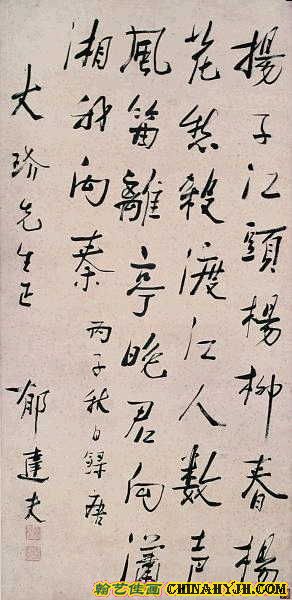 揚子江頭楊柳春楊
花愁殺渡江人數声
風笛離亭晚君向瀟
湘我向秦 丙子秋日錄唐
大 先生正 郁達夫
翰艺佳画 CHINAHYJH.COM